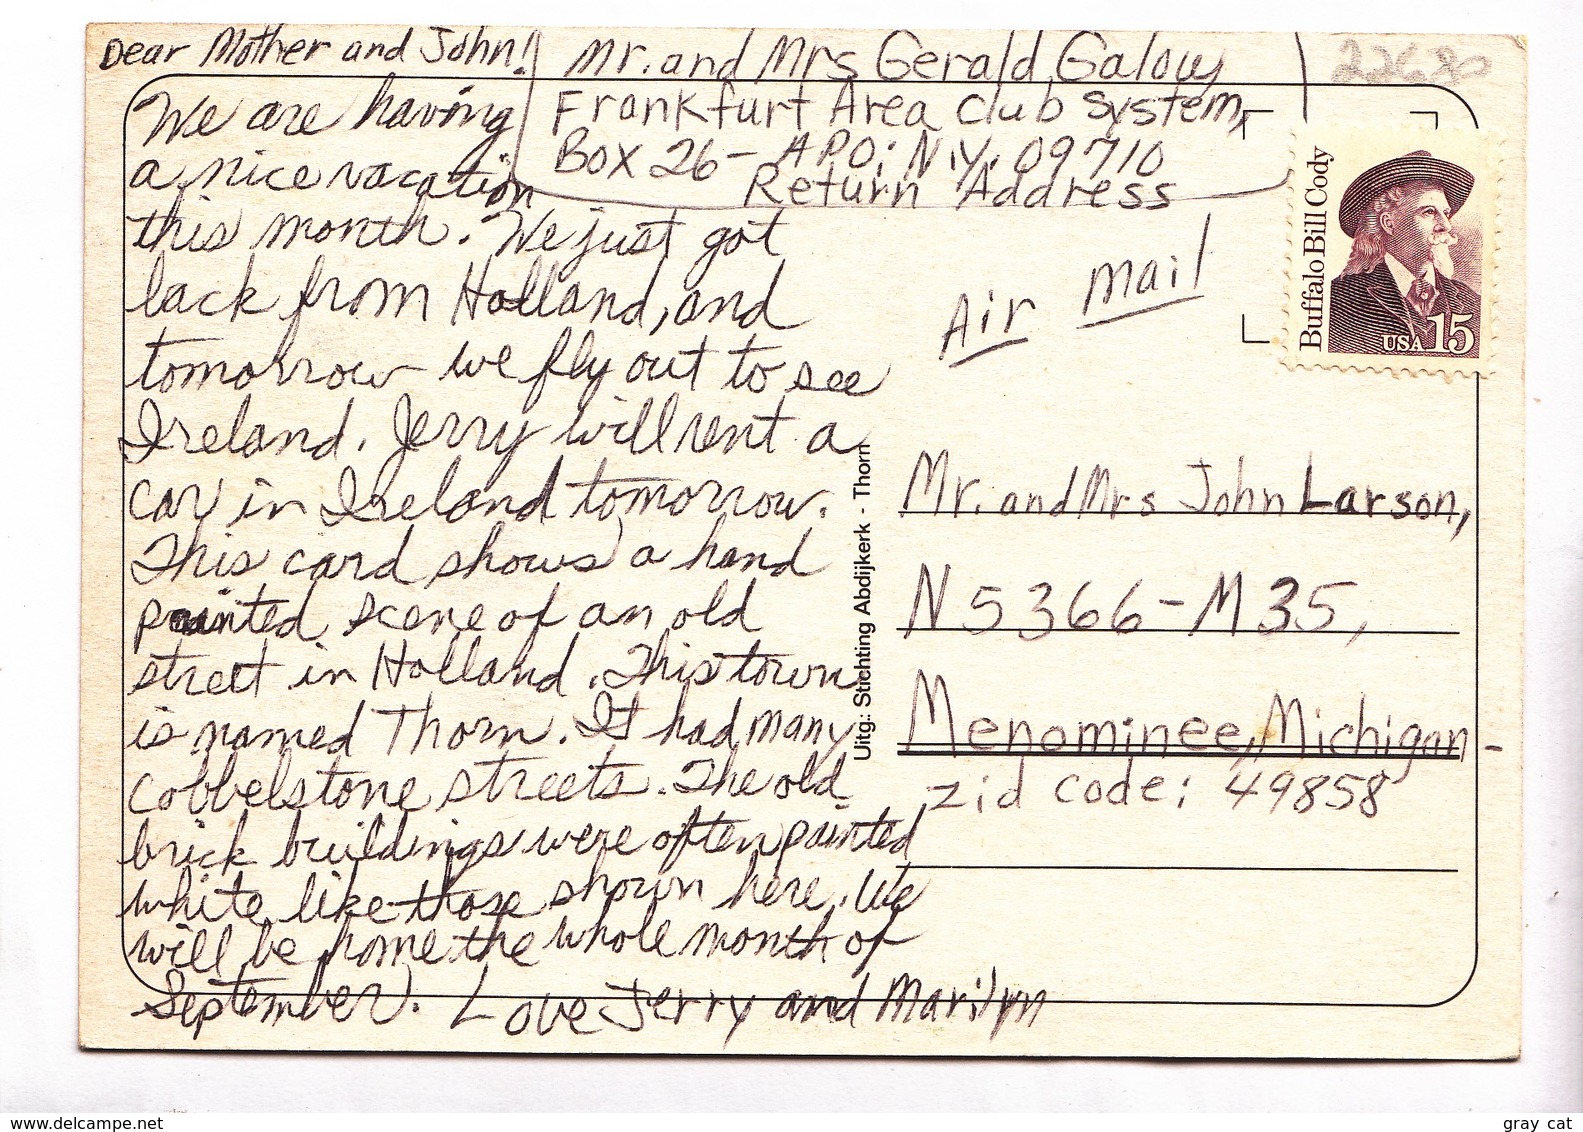 Dear Mother and John!
We are having
a nice vacation
this month. We just got
back from Holland, and
tomorrow we fly out to see
Ireland. Jerry will rent a
car in Ireland tomorrow.
This card shows a hand
painted scene of an old
street in Holland. This town
is named Thorn. It had many
cobbelstone streets. The old
brick buildings were often painted
white like those shown here. We
will be home the whole month of
September. Love Jerry and Marilyn
Mr. and Mrs Gerald Galow
Frankfurt Area Club System,
Box 26- APO: N.Y. 09710
Return Address
22680
Buffalo Bill Cody
USA 15
Air Mail
Uitg.: Stichting Abdijkerk - Thorn
Mr. and Mrs John Larson,
N5366-M35,
Menominee, Michigan-
zid code: 49858
www.delcampe.net
gray cat